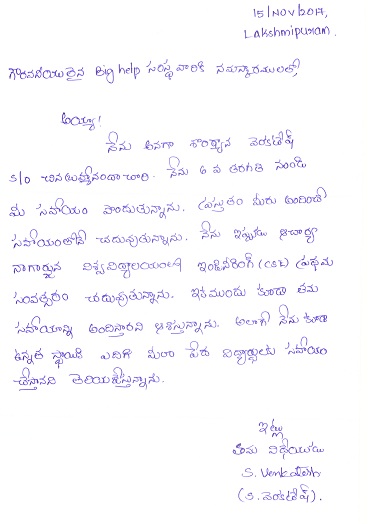 15/Nov/2017,
Lakshmipuram.
గౌరవనీయులైన Big help సంస్థ వారికి నమస్కారములతో,
అయ్యా!
నేను అనగా శొంఠ్యాన వెంకటేష్
S/o చిన బ్రహ్మానందాచారి. నేను 6 వ తరగతి నుండి
మీ సహాయం పొందుతున్నాను. ప్రస్తుతం మీరు అందించే
సహాయంతోనే చదువుతున్నాను. నేను ఇప్పుడు ఆచార్య
నాగార్జున విశ్వవిద్యాలయంలో ఇంజనీరింగ్ (CSE) ప్రథమ
సంవత్సరం చదువుతున్నాను. ఇకముందు కూడా తమ
సహాయాన్ని అందిస్తారని ఆశిస్తున్నాను. అలాగే నేను కూడా
ఉన్నత స్థాయికి ఎదిగి మీలా పేద విద్యార్థులకు సహాయం
చేస్తానని తెలియజేస్తున్నాను.
ఇట్లు
తమ విధేయుడు
S. Venkatesh
(S. వెంకటేష్).